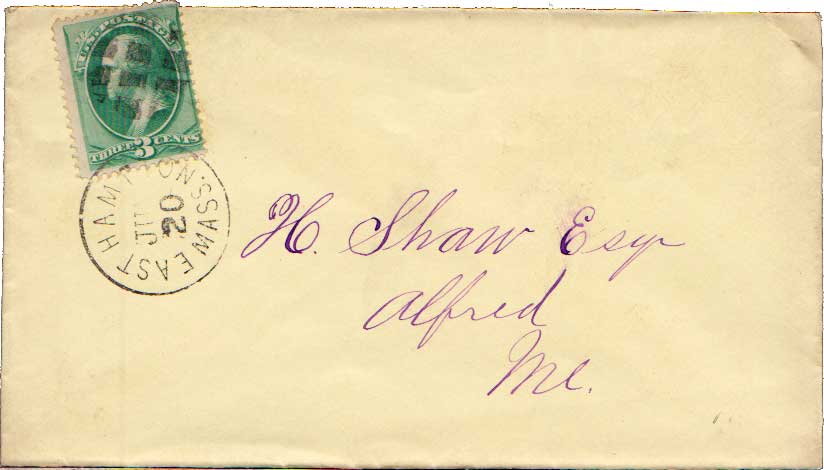 U.S. POSTAGE
THREE 3 CENTS
EAST HAMPTON MASS.
20
H. Shaw Esqr
Alfred
Me.